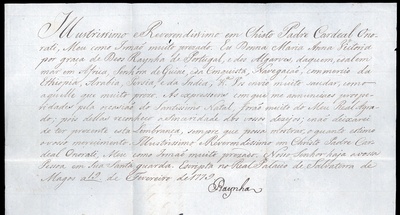 Illustrissimo e Reverendissimo em Christo Padre Cardeal Ono-
rato, Meu como Irmaõ muito prezado. Eu Donna Maria Anna Victoria
por graça de Deos Raynha de Portugal, e dos Algarves, daquem, e dalem
mar em Africa, Senhora de Guiné, e da Conquista, Navegaçaõ, Commercio da
Ethiopia, Arabia, Persia, e da India, &ª. Vos envio muito saudar, como a
aquelle que muito prezo. As expressoens com que me annunciaes prosperi-
dades pela occasiaõ do Santissimo Natal, foraõ muito do Meu Real Agra-
do; pois nellas reconheço a sinceridade dos vossos desejos; e naõ deixarei
de ter presente esta lembrança, sempre que possa mostrar, o quanto estimo
o vosso merecimento. Illustrissimo e Reverendissimo em Christo Padre Car-
deal Onorato, Meu como Irmaõ muito prezado, Nosso Senhor haja a vossa
Pessoa em Sua Santa guarda. Escripta no Real Palacio de Salvaterra de
Magos a 12 de Fevereiro de 1773
Raynha